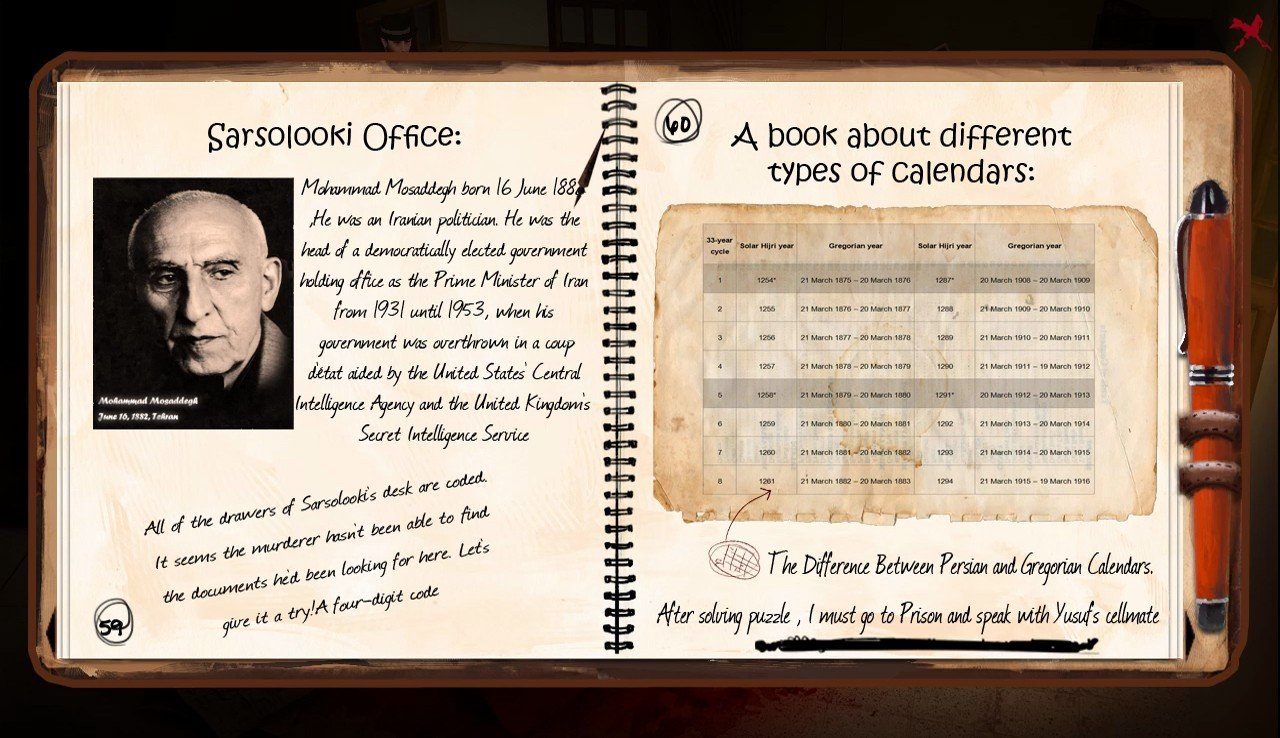 Sarsolooki Office:
Mohammad Mosaddegh born 16 June 1882
,He was an Iranian politician. He was the
head of a democratically elected government
holding office as the Prime Minister of Iran
from 1931 until 1953, when his
government was overthrown in a coup
d'état aided by the United States' Central
Intelligence Agency and the United Kingdom's
Secret Intelligence Service
Mohammad Mosaddegh
June 16, 1882, Tehran
All of the drawers of Sarsolooki's desk are coded.
It seems the murderer hasn't been able to find
the documents he'd been looking for here. Let's
give it a try!A four-digit code
59
60
A book about different
types of calendars:
33-year cycle Solar Hijri year Gregorian year Solar Hijri year Gregorian year
1 1254* 21 March 1875 – 20 March 1876 1287* 20 March 1908 – 20 March 1909
2 1255 21 March 1876 – 20 March 1877 1288 21 March 1909 – 20 March 1910
3 1256 21 March 1877 – 20 March 1878 1289 21 March 1910 – 20 March 1911
4 1257 21 March 1878 – 20 March 1879 1290 21 March 1911 – 19 March 1912
5 1258* 21 March 1879 – 20 March 1880 1291* 20 March 1912 – 20 March 1913
6 1259 21 March 1880 – 20 March 1881 1292 21 March 1913 – 20 March 1914
7 1260 21 March 1881 – 20 March 1882 1293 21 March 1914 – 20 March 1915
8 1261 21 March 1882 – 20 March 1883 1294 21 March 1915 – 19 March 1916
The Difference Between Persian and Gregorian Calendars.
After solving puzzle , I must go to Prison and speak with Yusuf's cellmate